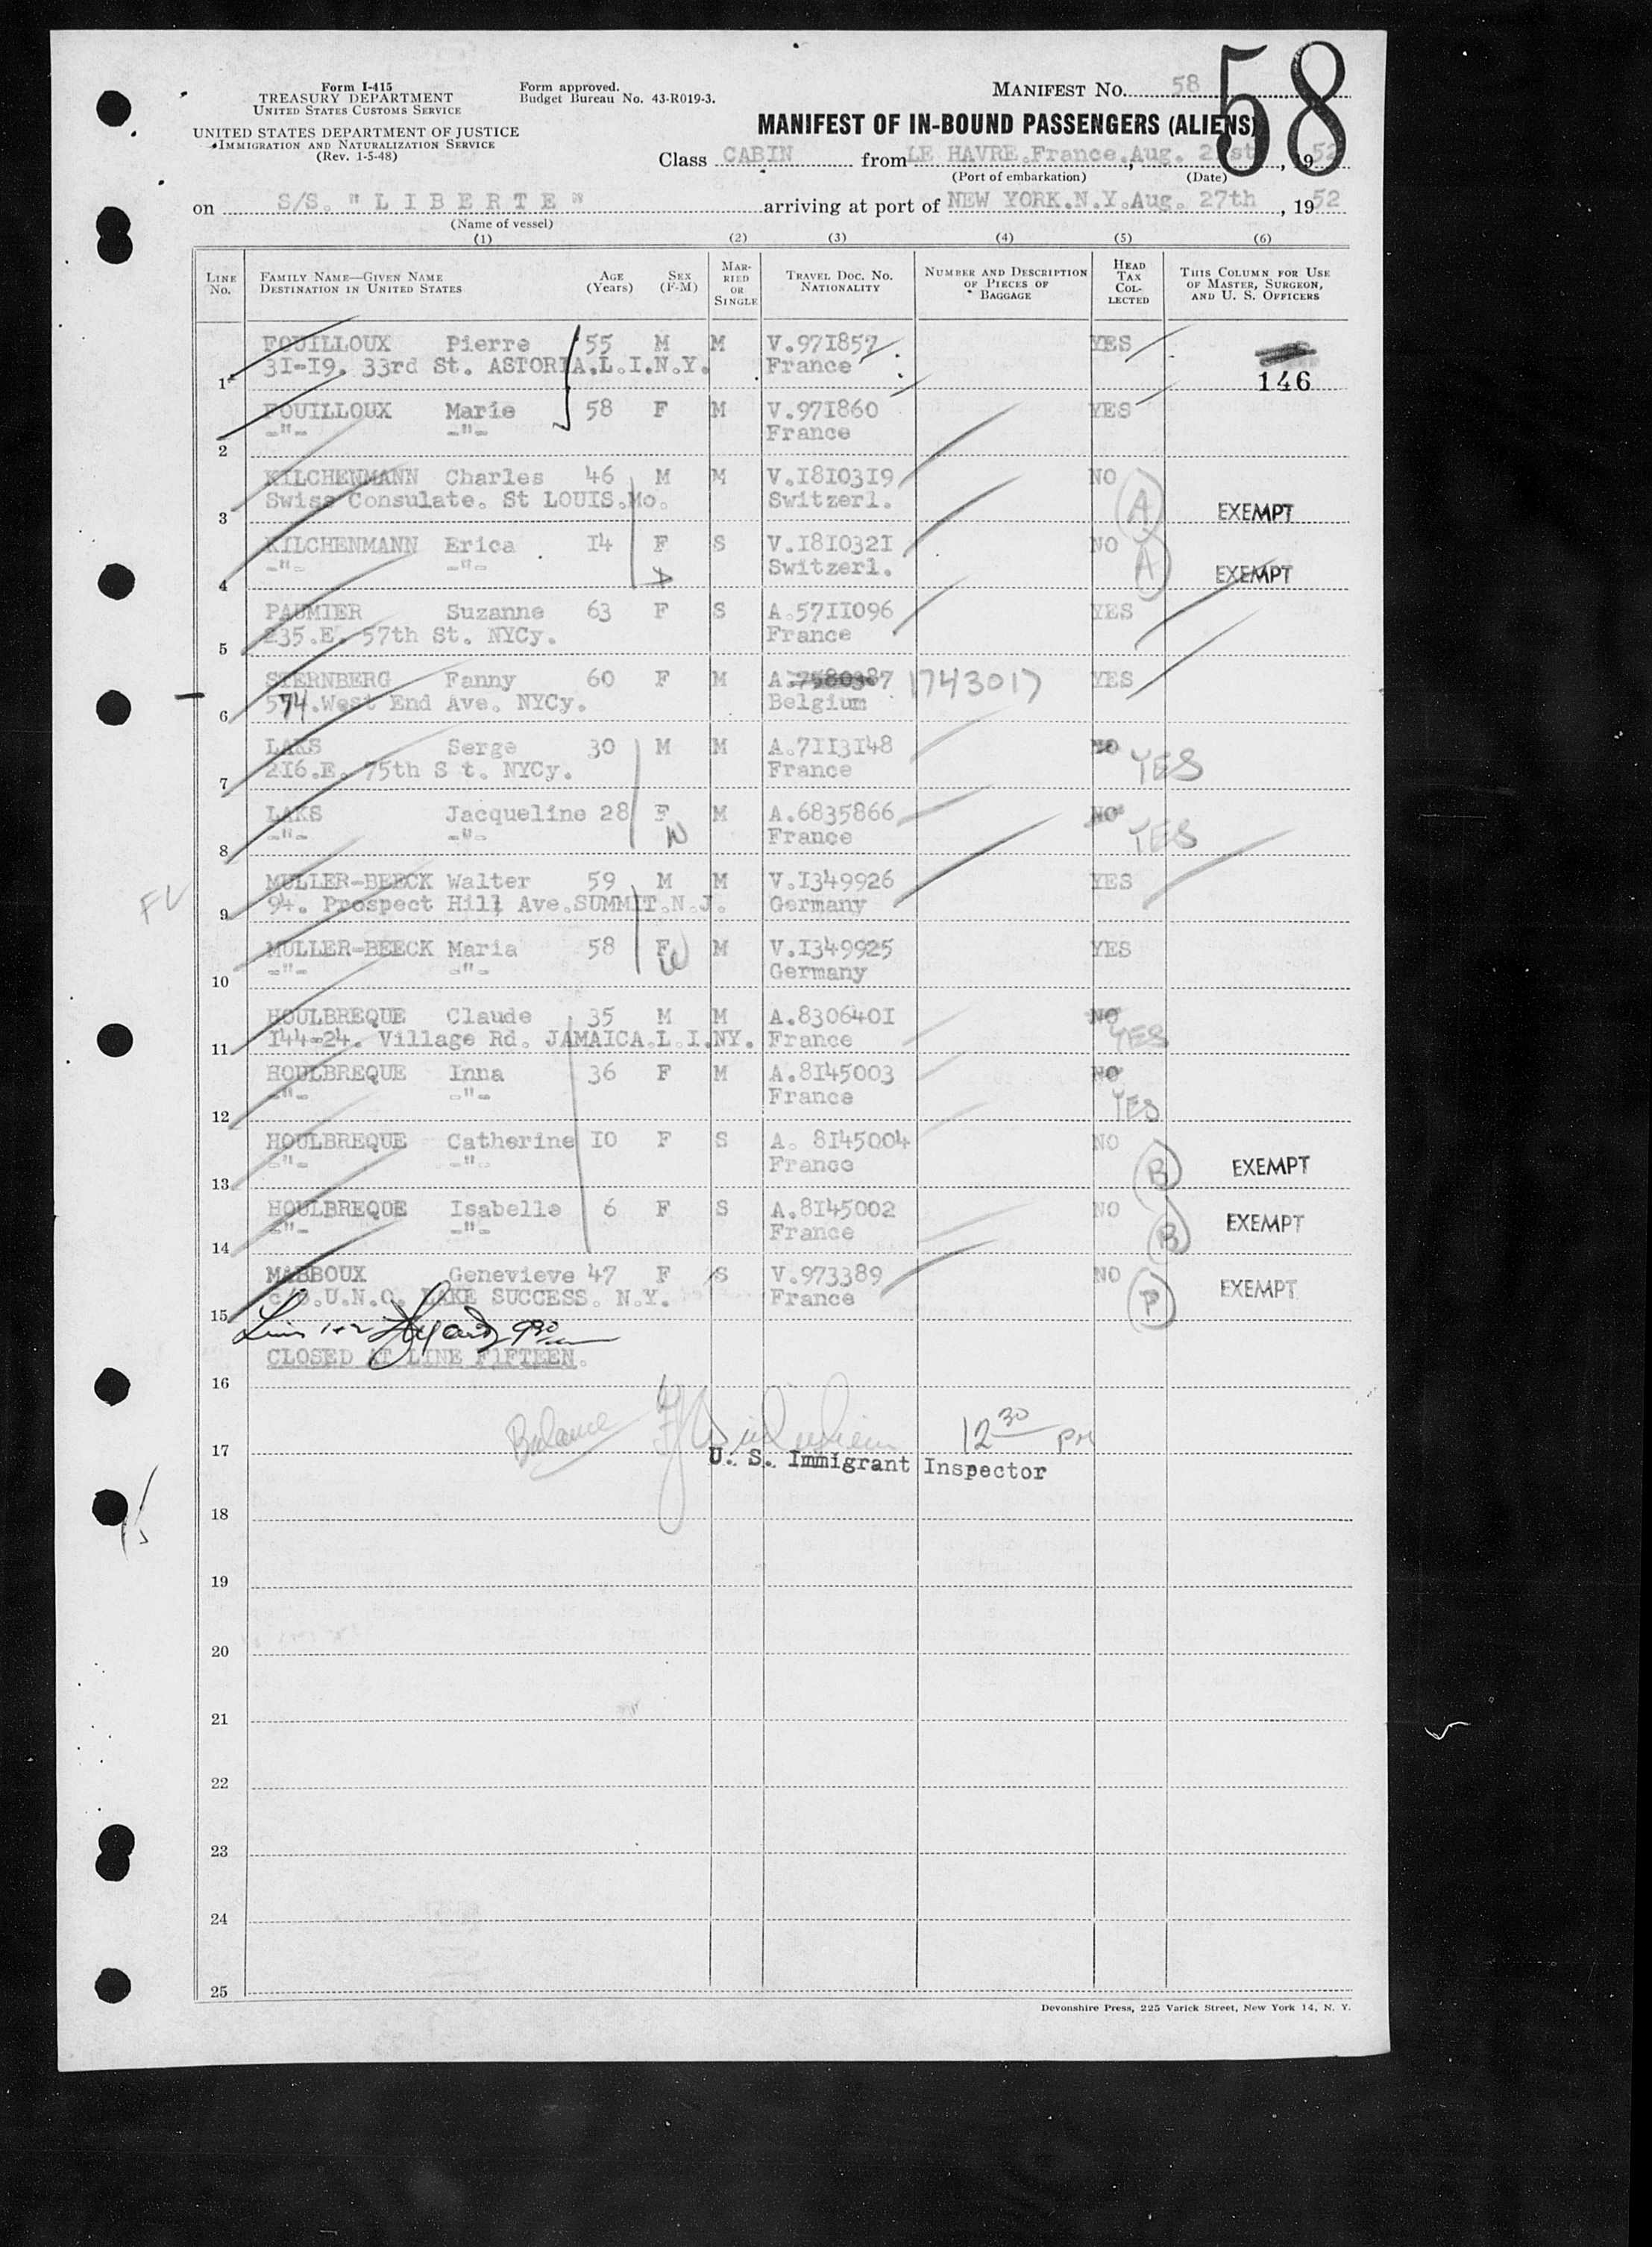 58
Form I-415
TREASURY DEPARTMENT
UNITED STATES CUSTOMS SERVICE
UNITED STATES DEPARTMENT OF JUSTICE
IMMIGRATION AND NATURALIZATION SERVICE
(Rev. 1-5-48)
Form approved.
Budget Bureau No. 43-R019-3.
MANIFEST NO. 58
MANIFEST OF IN-BOUND PASSENGERS (ALIENS)
Class CABIN from LE HAVRE.France.Aug. 21st, 1952
(Port of embarkation) (Date)
on S/S. "LIBERTE" arriving at port of NEW YORK.N.Y.Aug. 27th, 1952
(Name of vessel)
(1) (2) (3) (4) (5) (6)
LINE No. FAMILY NAME—GIVEN NAME DESTINATION IN UNITED STATES AGE (Years) SEX (F-M) MARRIED OR SINGLE TRAVEL DOC. NO. NATIONALITY NUMBER AND DESCRIPTION OF PIECES OF BAGGAGE HEAD TAX COLLECTED THIS COLUMN FOR USE OF MASTER, SURGEON, AND U. S. OFFICERS
FOUILLOUX Pierre 55 M M V.971857 YES
1 31-19. 33rd St. ASTORIA.L.I.N.Y. France 146
FOUILLOUX Marie 58 F M V.971860 YES
2 -"- -"- France
KILCHENMANN Charles 46 M M V.1810319 NO
3 Swiss Consulate. St LOUIS.Mo. Switzerl. A EXEMPT
KILCHENMANN Erica 14 F S V.1810321 NO
4 -"- -"- Switzerl. A EXEMPT
PAUMIER Suzanne 63 F S A.5711096 YES
5 235.E. 57th St. NYCy. France
STERNBERG Fanny 60 F M A.7580387 1743017 YES
6 574.West End Ave. NYCy. Belgium
LAKS Serge 30 M M A.7113148 NO YES
7 216.E. 75th S t. NYCy. France
LAKS Jacqueline 28 F M A.6835866 NO YES
8 -"- -"- W France
MULLER-BEECK Walter 59 M M V.1349926 YES
FV 9 94. Prospect Hill Ave.SUMMIT.N.J. Germany
MULLER-BEECK Maria 58 F M V.1349925 YES
10 -"- -"- W Germany
HOULBREQUE Claude 35 M M A.8306401 NO YES
11 144-24. Village Rd. JAMAICA.L.I.NY. France
HOULBREQUE Inna 36 F M A.8145003 NO
12 -"- -"- France YES
HOULBREQUE Catherine 10 F S A. 8145004 NO
13 -"- -"- France B EXEMPT
HOULBREQUE Isabelle 6 F S A.8145002 NO
14 -"- -"- France B EXEMPT
MABBOUX Genevieve 47 F S V.973389 NO
15 c/o.U.N.O. LAKE SUCCESS. N.Y. France P EXEMPT
CLOSED AT LINE FIFTEEN.
16
Balance 12 30 PM
17 U. S. Immigrant Inspector
18
19
20
21
22
23
24
25
Devonshire Press, 225 Varick Street, New York 14, N. Y.